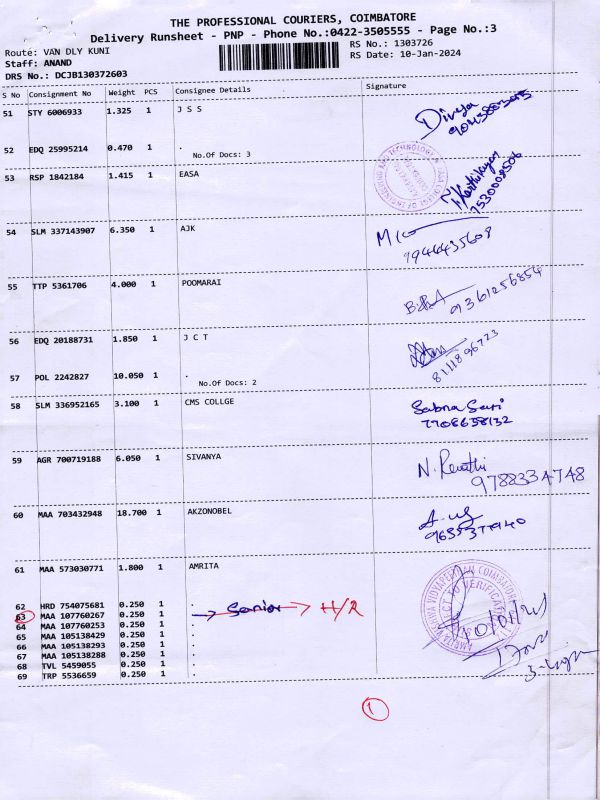 THE PROFESSIONAL COURIERS, COIMBATORE
Delivery Runsheet - PNP - Phone No.:0422-3505555 - Page No.:3
Route: VAN DLY KUNI
RS No.: 1303726
Staff: ANAND
RS Date: 10-Jan-2024
DRS No.: DCJB130372603
S No Consignment No Weight PCS Consignee Details Signature
51 STY 6006933 1.325 1 J S S
Divya
52 EDQ 25995214 0.470 1 .
No.Of Docs: 3
53 RSP 1842184 1.415 1 EASA
Karthikeyan
7530008506
54 SLM 337143907 6.350 1 AJK
9944435609
55 TTP 5361706 4.000 1 POOMARAI
9361256854
56 EDQ 20188731 1.850 1 J C T
8111896723
57 POL 2242827 10.050 1 .
No.Of Docs: 2
58 SLM 336952165 3.100 1 CMS COLLGE
Sabna Sasi
7708658132
59 AGR 700719188 6.050 1 SIVANYA
N. Revathi
9788334748
60 MAA 703432948 18.700 1 AKZONOBEL
9655377940
61 MAA 573030771 1.800 1 AMRITA
62 HRD 754075681 0.250 1 .
63 MAA 107760267 0.250 1 . → Senior → H/R
64 MAA 107760253 0.250 1 .
65 MAA 105138429 0.250 1 .
66 MAA 105138293 0.250 1 .
67 MAA 105138288 0.250 1 .
68 TVL 5459055 0.250 1 .
69 TRP 5536659 0.250 1 .
1